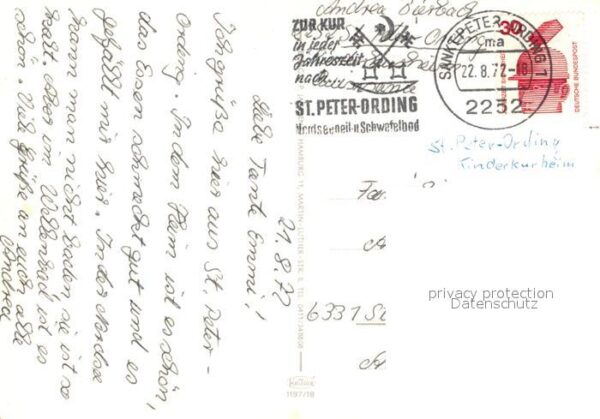 21.8.72
Liebe Tante Emmi!
Ich grüße hier aus St. Peter-
Ording. In dem Heim ist es schön,
das Essen schmeckt gut und es
gefällt mir hier. In der Nordsee
kann man nicht baden sie ist so
kalt, aber im Wellenbad ist es
schön. Viele Grüße an euch alle
Andrea
Andrea
ZUR KUR
in jeder
Jahreszeit
nach
ST. PETER-ORDING
Nordseeheil- u Schwefelbad
SANKT PETER-ORDING 1
ma
22.8.72-18
2252
30
DEUTSCHE BUNDESPOST
St. Peter-Ording
Kinderkurheim
Fa
6331
privacy protection
Datenschutz
HAMBURG 11, MARTIN-LUTHER-STR.
KRÜGER
1197/18